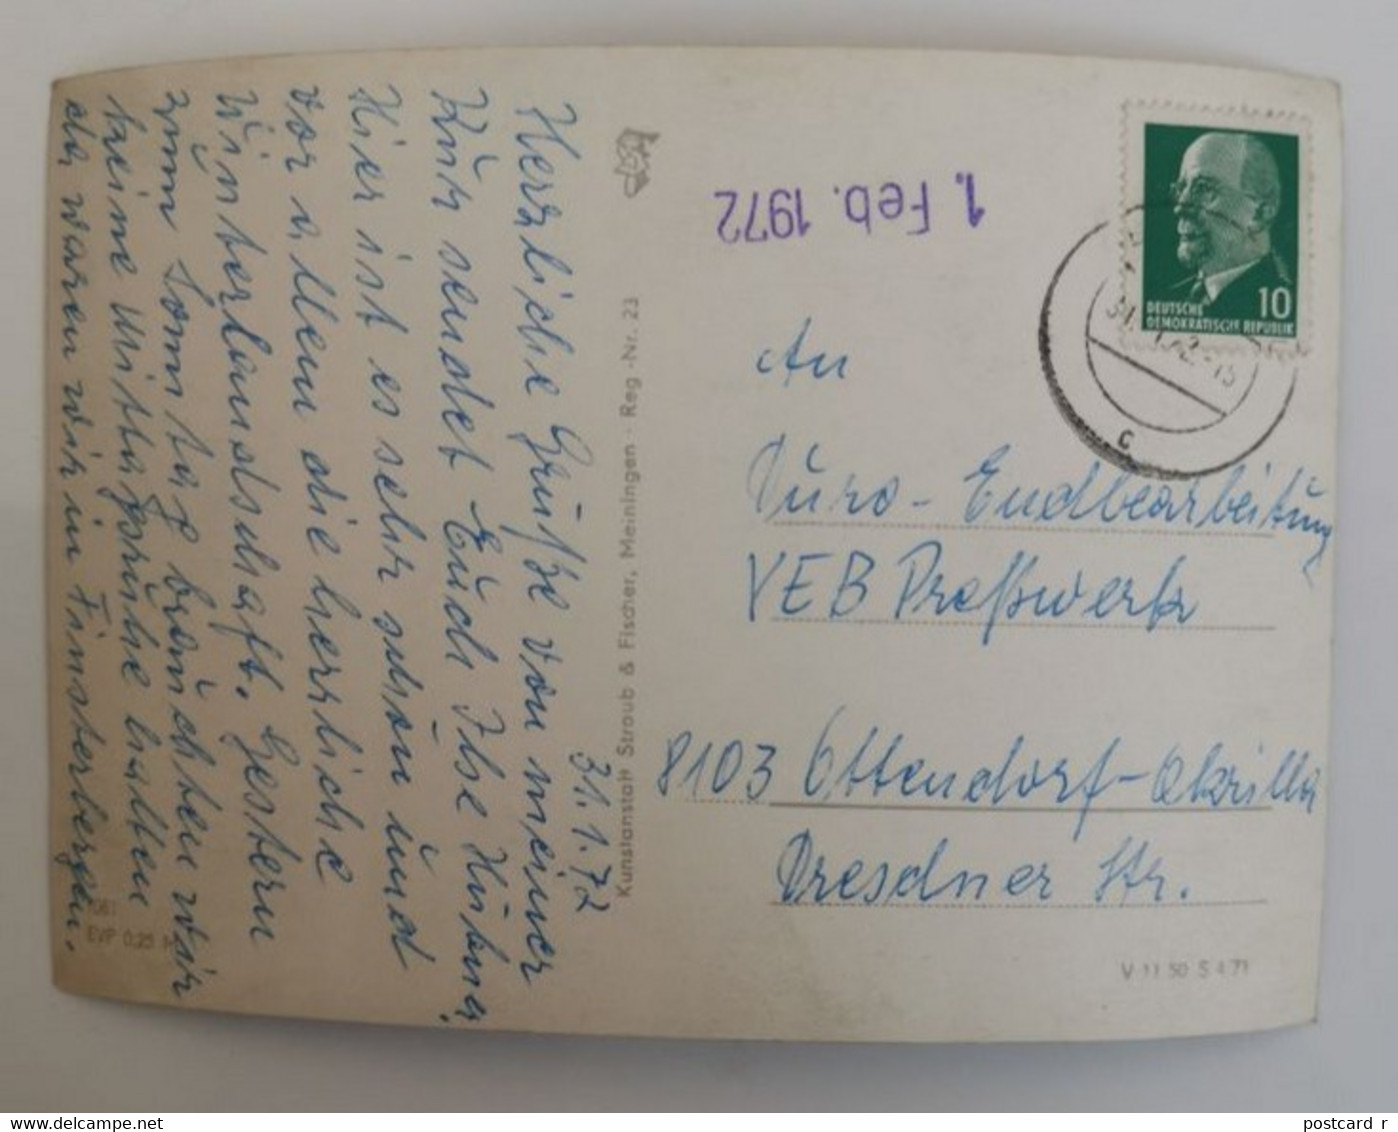 31.1.72
Herzliche Grüße von meiner
Kur sendet Euch Ilse Hübner,
Hier ist es sehr schön und
vor allem die herrliche
Winterlandschaft. Gestern
zum Sonntag brauchten wir
keine Mittagsruhe halten
da waren wir in Finsterbergen.
EVP 0,25 M
Kunstanstalt Straub & Fischer, Meiningen · Reg.-Nr. 23
1. Feb. 1972
DEUTSCHE
DEMOKRATISCHE REPUBLIK
10
c
An
Düro-Endbearbeitung
VEB Preßwerk
8103 Ottendorf-Okrilla
Dresdner Str.
V 11 50 S 4 71
www.delcampe.net
postcard_r